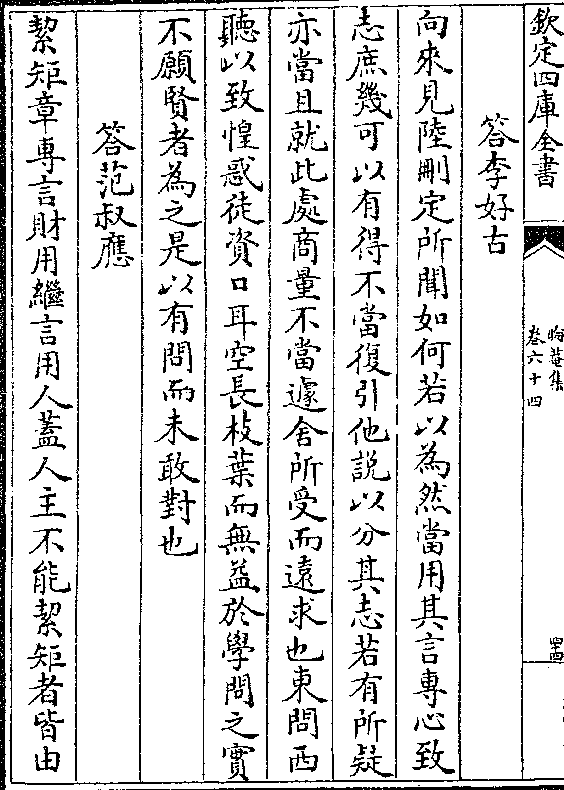 欽定四庫全書
晦菴集
卷六十四
答李好古
向來見陸刪定所聞如何若以為然當用其言專心致
志庶幾可以有得不當復引他說以分其志若有所疑
亦當且就此處商量不當遽舍所受而遠求也東問西
聽以致惶惑徒資口耳空長枝葉而無益於學問之實
不願賢者為之是以有問而未敢對也
答范叔應
絜矩章專言財用繼言用人蓋人主不能絜矩者皆由